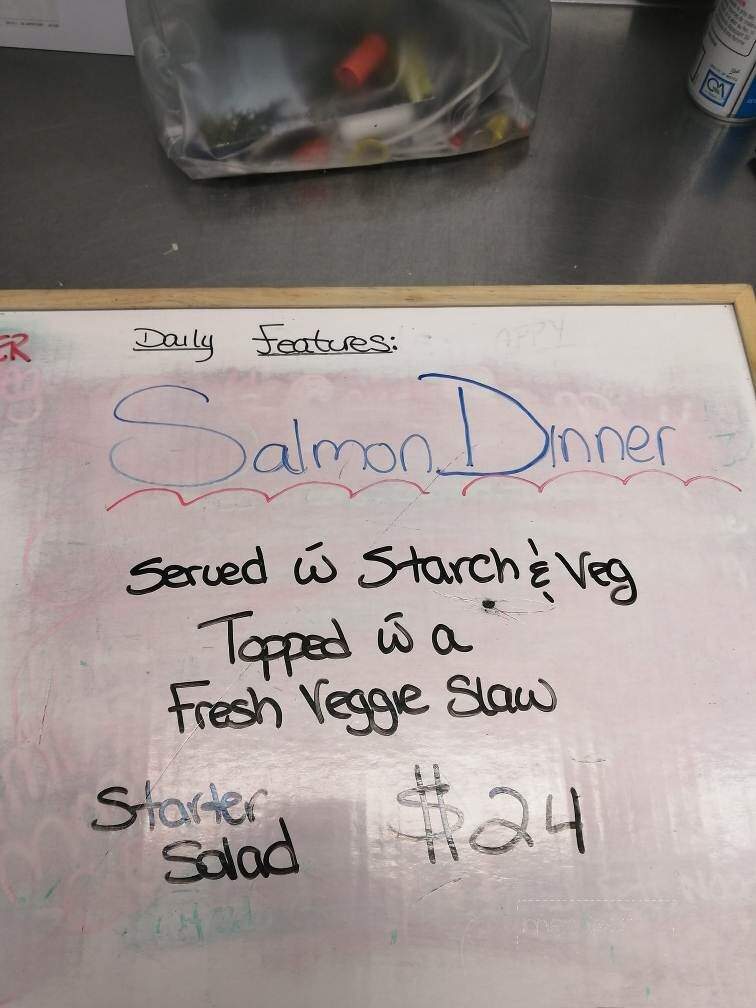 ER
Daily Features:
APPY
Salmon Dinner
Served w̄ Starch & Veg
Topped w̄ a
Fresh Veggie Slaw
Starter
Salad
$24